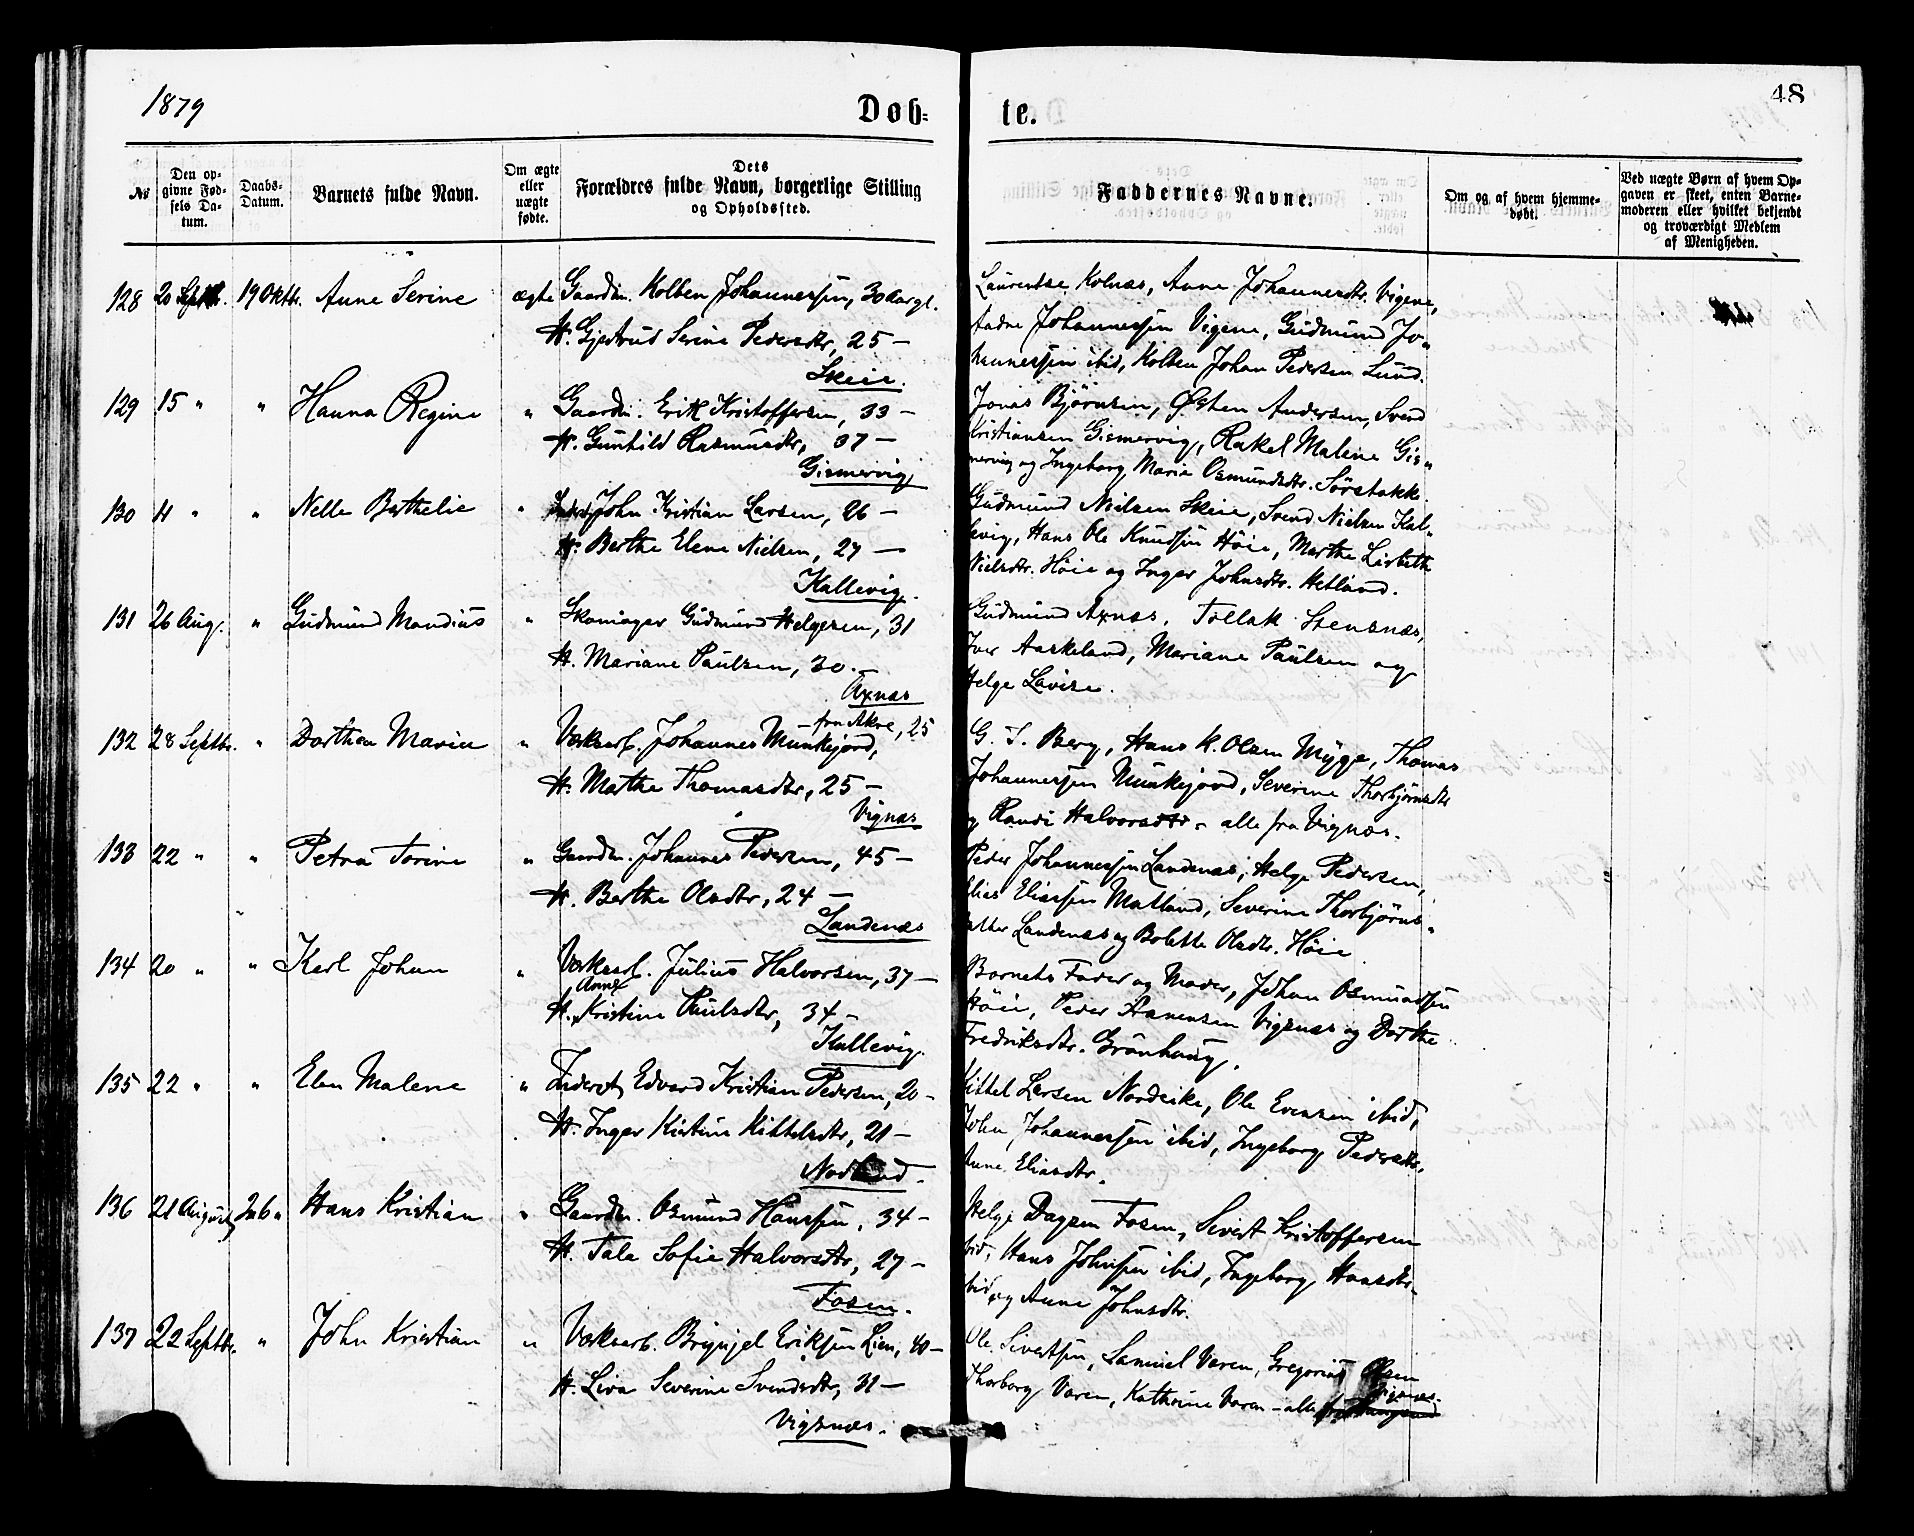 1879
Døb-
te.
48
№
Den op-
givne Fød-
sels Da-
tum.
Daabs-
Datum.
Barnets fulde Navn.
Om ægte
eller
uægte
fødte.
Dets
Forældres fulde Navn, borgerlige Stilling
og Opholdssted.
Faddernes Navne.
Om og af hvem hjemme-
døbt.
Ved uægte Børn af hvem Op-
gaven er skeet, enten Barne-
moderen eller hvilket bekjendt
og troværdigt Medlem
af Menigheden.
128 20 Septb. 19 Oktbr. Anne Serine ægte Gaardm. Kolben Johannessen, 30 Aar gl.
H. Gjertrud Serine Pedersdtr, 25 —
Skeie.
Laurentse Kolnas, Anne Johannesdtr. Vigene,
Aadne Johannessen Vigene, Gudmund Jo-
hannessen ibid, Kolben Johan Pedersen Lund.
129 15 " " Hanna Regine " Gaardm. Erik Kristoffersen, 33 —
H. Gunhild Rasmusdtr, 37 —
Gismervig
Jonas Bjørnsen, Østen Andersen, Svend
Kristiansen Gismervig, Rakel Malene Gis-
mervig og Ingeborg Marie Osmundsdtr. Sørstokke.
130 4 " " Nelle Berthelie " John Kristian Larsen, 26 —
H. Berthe Elene Nielsen, 27 —
Kallevig.
Gudmund Nielsen Skeie, Svend Nielsen Kal-
levig, Hans Ole Knudsen Høie, Marthe Lisbeth
Nielsdtr. Høie og Inger Johnsdtr. Hetland.
131 26 Aug. " Gudmund Mandius " Skomager Gudmund Helgesen, 31
H. Mariane Paulsen, 30. —
Axnas
Gudmund Axnas, Tollak Stensnas,
Iver Aaskeland, Mariane Paulsen og
Helge Lavise.
132 28 Septbr. " Dorthea Marie " Værksarb. Johannes Munkejord, — fra Akre, 25
H. Marthe Thomasdtr, 25 —
Vignas
G. T. Berg, Hans K. Olsen Myge, Thomas
Johannessen Munkejord, Severine Thorbjørnsdtr
og Randi Halvorsdtr - alle fra Vignas.
133 22 " " Petra Torine " Gaardm. Johannes Pedersen, 45 —
H. Berthe Olsdtr, 24 —
Landenas
Peder Johannessen Landenas, Helge Pedersen,
Elias Eliassen Matland, Severine Thorbjørns-
datter Landenas og Bolette Olsdtr. Høie.
134 20 " " Karl Johan " Værksarb. Julius Halvorsen, 37 —
H. Anne Kristine Paulsdtr, 34 —
Kallevig.
Barnets Fader og Moder, Johan Osmundsen
Høie, Peder Hanensen Vigsnas og Dorthe
Fredriksdtr. Grønhaug.
135 22 " " Elen Malene " Inderst Edvard Kristian Pedersen, 20 —
H. Inger Kistine Kittelsdtr, 21 —
Kittel Larsen Nordeike, Ole Evensen ibid,
John Johannessen ibid, Ingeborg Pedersdtr.
Anne Eliasdtr.
136 21 August 26 " Hans Kristian " Gaardm. Osmund Hanssen, 34 —
H. Tala Sofie Halvorsdtr, 27 —
Fosen.
Helge Dagsen Fosen, Sivert Kristoffersen
ibid, Hans Johnsen ibid, Ingeborg Hansdtr.
ibid, og Anne Johnsdtr.
137 22 Septbr. " John Kristian " Værksarb. Brynjel Eriksen Lien, 40 —
H. Liva Severine Svendsdtr, 31 —
Vigsnas.
Ole Sivertsen, Samuel Varen, Gregorius Olsen
Thorborg Varen, Kathrine Varen - alle Vigsnas.